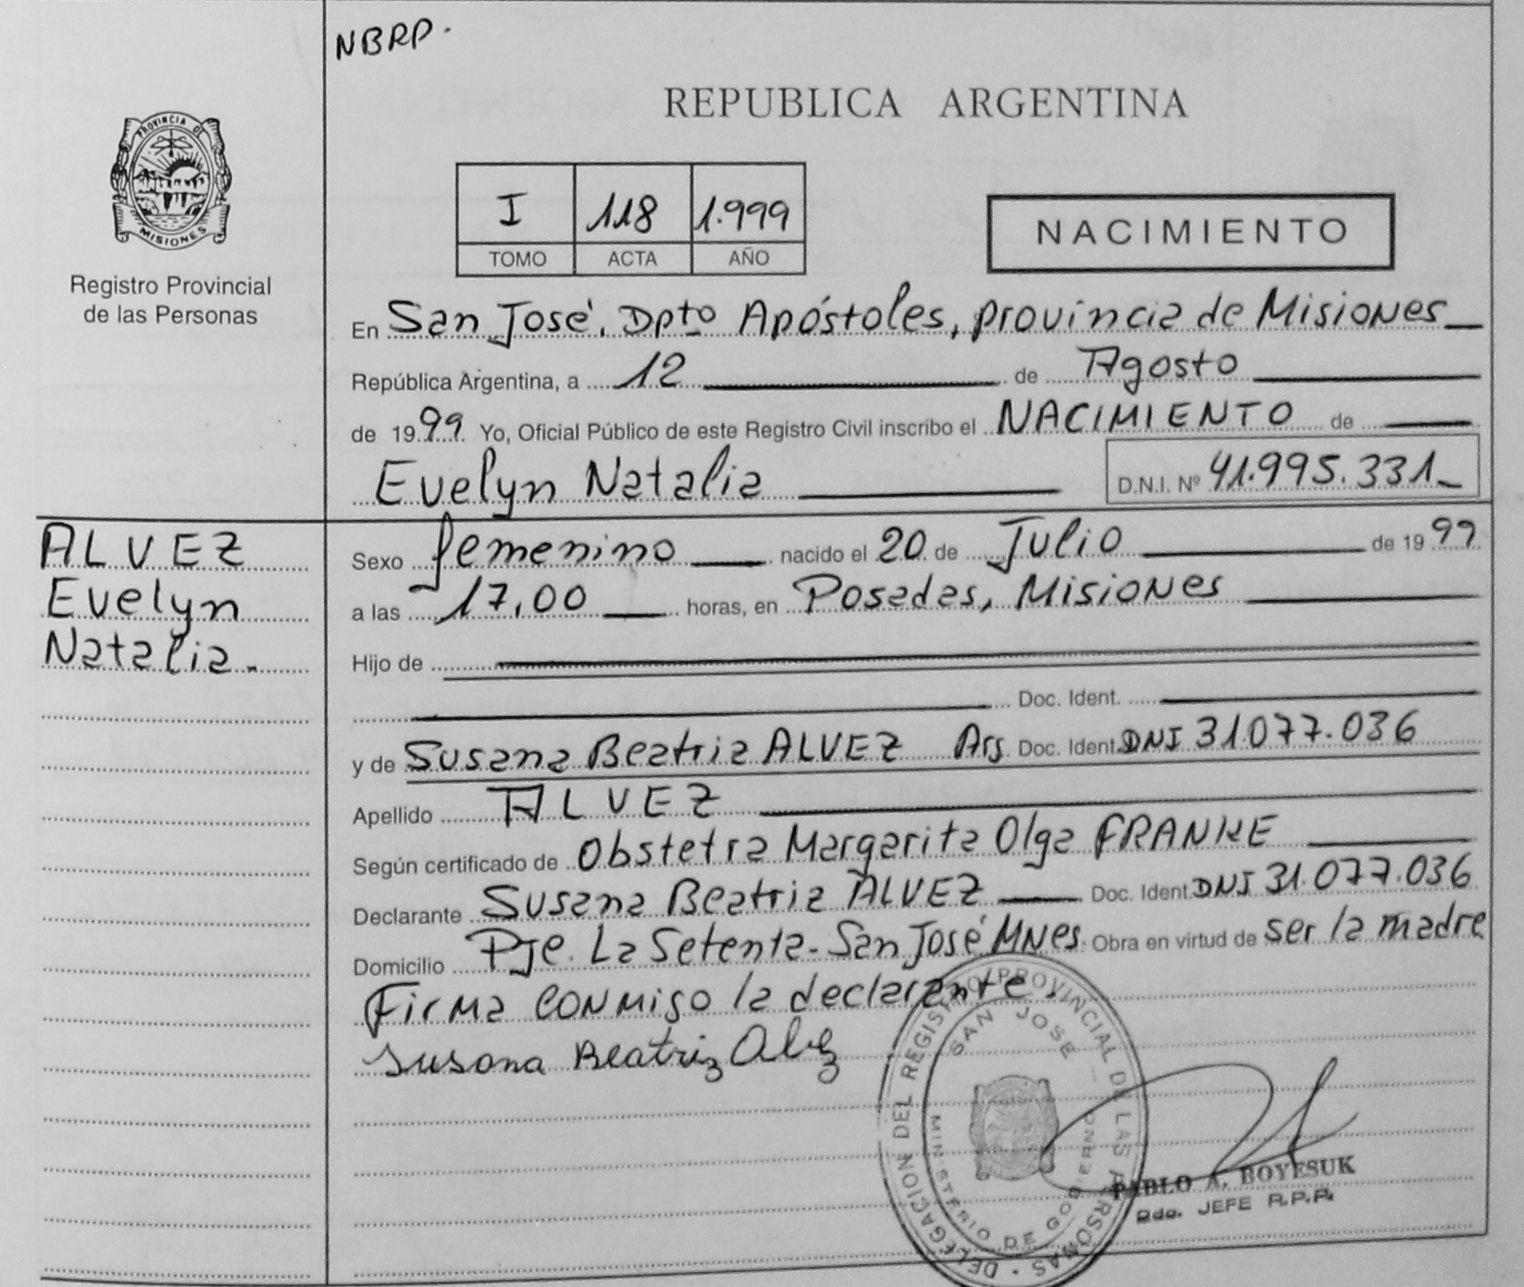 NBRP.
REPUBLICA ARGENTINA
PROVINCIA DE
MISIONES
Registro Provincial
de las Personas
I 118 1.999
TOMO ACTA AÑO
NACIMIENTO
En San José, Dpto Apóstoles, provincia de Misiones
República Argentina, a 12 de Agosto
de 1999 Yo, Oficial Público de este Registro Civil inscribo el NACIMIENTO de
Evelyn Natalia D.N.I. Nº 41.995.331
ALVEZ
Evelyn
Natalia.
Sexo femenino nacido el 20 de Julio de 1999
a las 17,00 horas, en Posadas, Misiones
Hijo de
Doc. Ident.
y de Susana Beatriz ALVEZ Arg. Doc. Ident. DNI 31.077.036
Apellido ALVEZ
Según certificado de Obstetra Margarita Olga FRANKE
Declarante Susana Beatriz ALVEZ Doc. Ident. DNI 31.077.036
Domicilio Pje. La Setenta - San José Mnes. Obra en virtud de ser la madre
Firma conmigo la declarante.
Susana Beatriz Alvez
DELEGACION DEL REGISTRO PROVINCIAL DE LAS PERSONAS
SAN JOSE
MINISTERIO DE GOBIERNO
PABLO A. BOYESUK
Gdo. JEFE R.P.P.